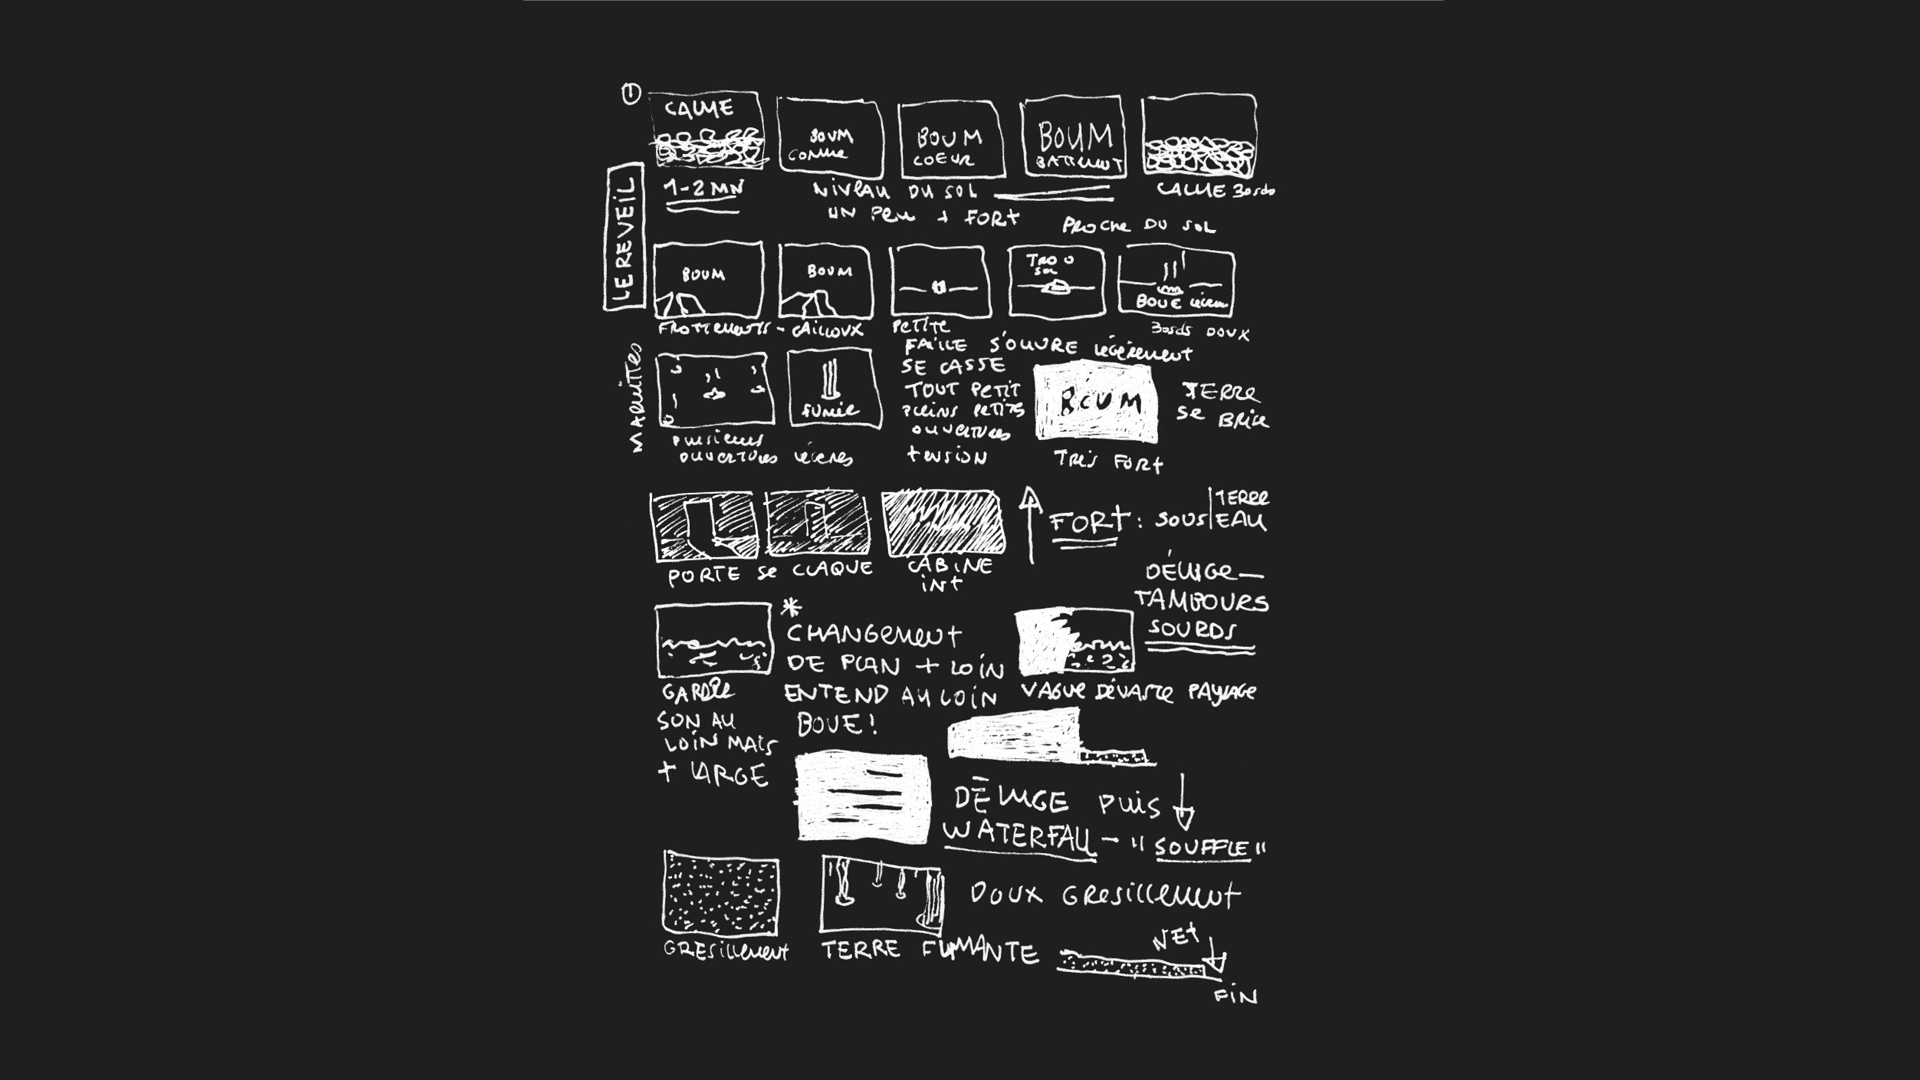 1
CALME
BOUM
COMME
BOUM
COEUR
BOUM
BATTEMENT
1-2 MN
NIVEAU DU SOL
CALME
UN PEU + FORT
PROCHE DU SOL
LE REVEIL
BOUM
BOUM
TROU
SOL
BOUE
FROTTEMENTS - CAILLOUX
PETITE
DOUX
FAILLE S'OUVRE LÉGÈREMENT
SE CASSE
TOUT PETIT
PLEINS PETITS
OUVERTURES
TENSION
MARMITES
FUMÉE
PLUSIEURS
OUVERTURES LÉGÈRES
BOUM
TERRE
SE BRISE
TRÈS FORT
PORTE SE CLAQUE
CABINE
INT
FORT : SOUS TERRE
EAU
DÉLUGE —
TAMBOURS
SOURDS
*
CHANGEMENT
DE PLAN + LOIN
ENTEND AU LOIN
BOUE !
GARDER
SON AU
LOIN MAIS
+ LARGE
VAGUE DÉVASTE PAYSAGE
DÉLUGE PUIS
WATERFALL - "SOUFFLE"
DOUX GRESILLEMENT
GRESILLEMENT
TERRE FUMANTE
NET
FIN